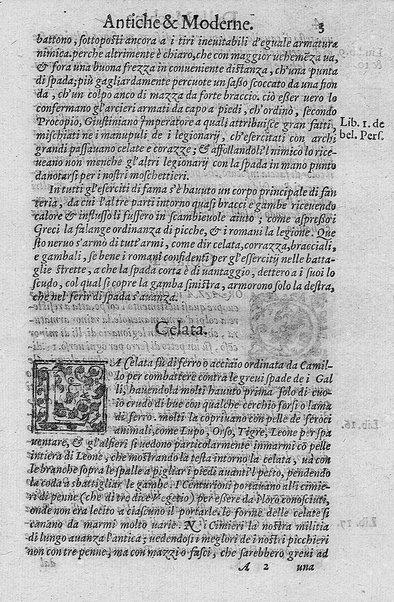 Antiche & Moderne. 3
battono, sottoposti ancora a i tiri ineuitabili d'eguale armatura
nimica. perche altrimente è chiaro, che con maggior uehemeza ua,
& fora una buona frezza in conueniente distanza, ch'una punta
di spada; piu gagliardamente percuote un sasso scoccato da una fion
da, ch'un colpo anco di mazza da forte braccio. ciò esser uero lo
confermano gl'arcieri armati da capo a piedi, ch'ordinò, secondo
Procopio, Giustiniano Imperatore a quali attribuisce gran fatti,
mischiati ne i manupuli de i legionarij, ch'esercitati con archi
grandi passauano celate e corazze; & affollandoli'l nimico lo rice
ueano non menche gl'altri legionarij con la spada in mano punto
danotarsi per i nostri moschettieri.
Lib. 1. de
bel. Pers.
In tutti gl'eserciti di fama s'è hauuto un corpo principale di fan
teria, da cui l'altre parti intorno quasi bracci e gambe riceuendo
calore & influsso li fussero in scambieuole aiuto; come appresso i
Greci la falange ordinanza di picche, & i romani la legione. Que
sto neruo s'armò di tutt'armi, come dir celata, corrazza, bracciali,
e gambali, se bene i romani confidenti per gl'essercitij nelle batta
glie strette, a che la spada corta è di uantaggio, dettero a i suoi lo
scudo, col qual si copre la gamba sinistra, armorono solo la destra,
che nel ferir di spada s'auanza.
Celata.
LA Celata fù di ferro o acciaio ordinata da Camil-
lo per combattere contra le greui spade de i Gal
li, hauendola molti hauuto prima solo di cuo-
io crudo di bue con qualche cerchio forsi o lama
di ferro. molti la copriuano con pelle de feroci
animali, come Lupo, Orso, Tigre, Leone per spa
uentare, & gl'alfieri si uedono particolarmente inmarmi cõ pelle
intiera di Leone, che mostrando la testa intorno la celata, uà con
le branche sopra le spalle a pigliar i piedi auanti l'petto, pendendo
la coda a sbattigliar le gambe. I Centurioni portauano all'i cimie
ri di penne (che di tre dice Vegetio) per essere da i loro conosciuti,
onde non era lecito a ciascuno il portarle. le forme delle celate si
cauano da marmi molto uarie. Ni Cimieri la nostra militia
di lungo auanza l'antica; uedendosi i meglori de i nostri picchieri
non con tre penne, ma con mazzi o fasci, che sarebbero greui ad
A 2 una